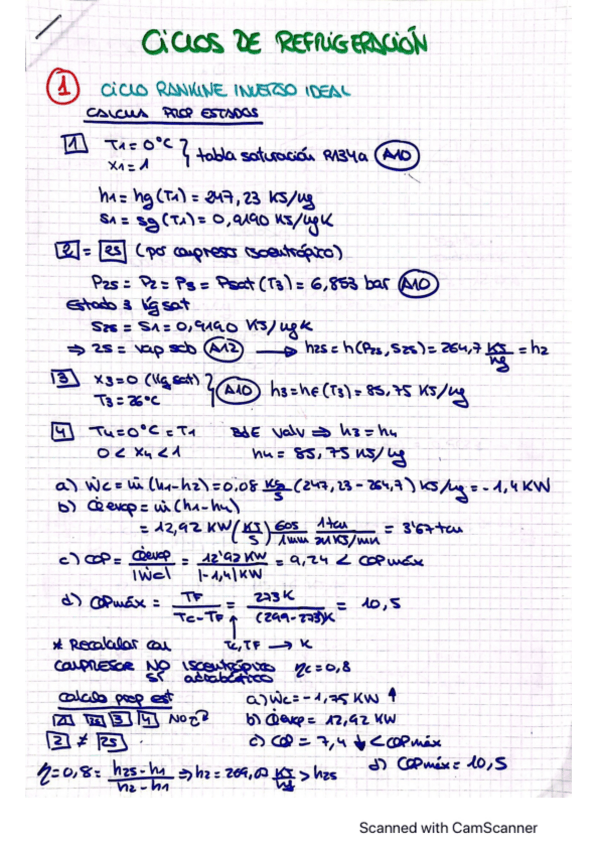 CICLOS DE REFRIGERACIÓN
1 CICLO RANKINE INVERSO IDEAL
CALCULA PROP ESTADOS
1 T1=0°C
X1=1 } tabla saturación R134a A10
h1=hg(T1)=247,23 KJ/kg
S1=sg(T1)=0,9190 KJ/kgK
2 = 2S (por compresor isoentrópico)
P2S=P2=P3=Psat(T3)=6,853 bar A10
Estado 3 líq sat
S2S=S1=0,9190 KJ/kgK
⇒ 2S=vap scb A12 → h2S=h(P2S,S2S)=264,7 KJ/kg = h2
3 X3=0 (líq sat)
T3=26°C } A10 h3=hf(T3)=85,75 KJ/kg
4 T4=0°C=T1 BdE Valv ⇒ h3=h4
0<X4<1 h4=85,75 KJ/kg
a) Ẇc=ṁ(h1-h2)=0.08 kg/s (247,23-264,7) KJ/kg=-1,4KW
b) Q̇evap=ṁ(h1-h4)
=12,92 KW (KJ/s) 60s/1min 1ton/211KJ/min = 3'67 ton
c) COP = Q̇evap/|Ẇc| = 12'92 KW/|-1,4|KW = 9,24 < COPmáx
d) COPmáx = TF/(TC-TF) = 273K/(299-273)K = 10,5
* Recalcular con TC,TF → K
COMPRESOR NO ISOENTRÓPICO ηc=0,8
SÍ adiabático
calculo prop est a) Ẇc=-1,75 KW ↑
1 2S 3 4 NO b) Q̇evap=12,92 KW
2 ≠ 2S c) COP=7,4 ↓ < COPmáx
d) COPmáx=10,5
η=0,8= (h2S-h1)/(h2-h1) ⇒ h2=269,0 KJ/kg > h2S
Scanned with CamScanner